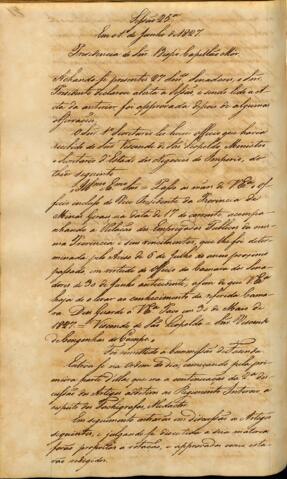 Sessão 25ª
Em o 1º de Junho de 1827
Presidencia do Snr Bispo Capellão Mór.
Achando-se presentes 27 Snrs Senadores, o Snr
Presidente declarou aberta a Sessão, e sendo lida a A-
cta da anterior foi approvada depois de algumas
O Snr 1º Secretario leo hum Officio que havia
recebido do Snr Visconde de São Leopoldo, Ministro
e Secretario d'Estado dos Negocios do Imperio, do
theor seguinte
Illmo Exmo Snr = Passo ás mãos de VExª o of-
ficio incluso do Vice Presidente da Provincia de
Minas Geraes na data de 17 do corrente, acompa-
nhando a Relação dos Empregados Publicos da mes-
ma Provincia, e seus vencimentos, que lhe foi deter-
minada pelo Aviso de 6 de Julho do anno proximo
passado, em virtude do Officio da Camara dos Sena-
dores de 30 de Junho antecedente, afim de que VExª
haja de o levar ao conhecimento da referida Cama-
ra. Deos Guarde a VExª Paço em 31 de Maio de
1827 = Visconde de São Leopoldo = Snr Visconde
de Congonhas do Campo.
Foi remettido á Commissão de Fazenda
Entrou-se na Ordem do dia, começando pela pri-
meira parte d'ella, que era a continuação da 2ª dis-
cussão dos Artigos additivos ao Regimento Interno a
respeito dos Tachigrafos, e Redactor.
Em seguimento entrarão em discussão os Artigos
seguintes, e julgando-se discutida a materia
forão propostos á votação, e approvados como esta-
vão redigidos.